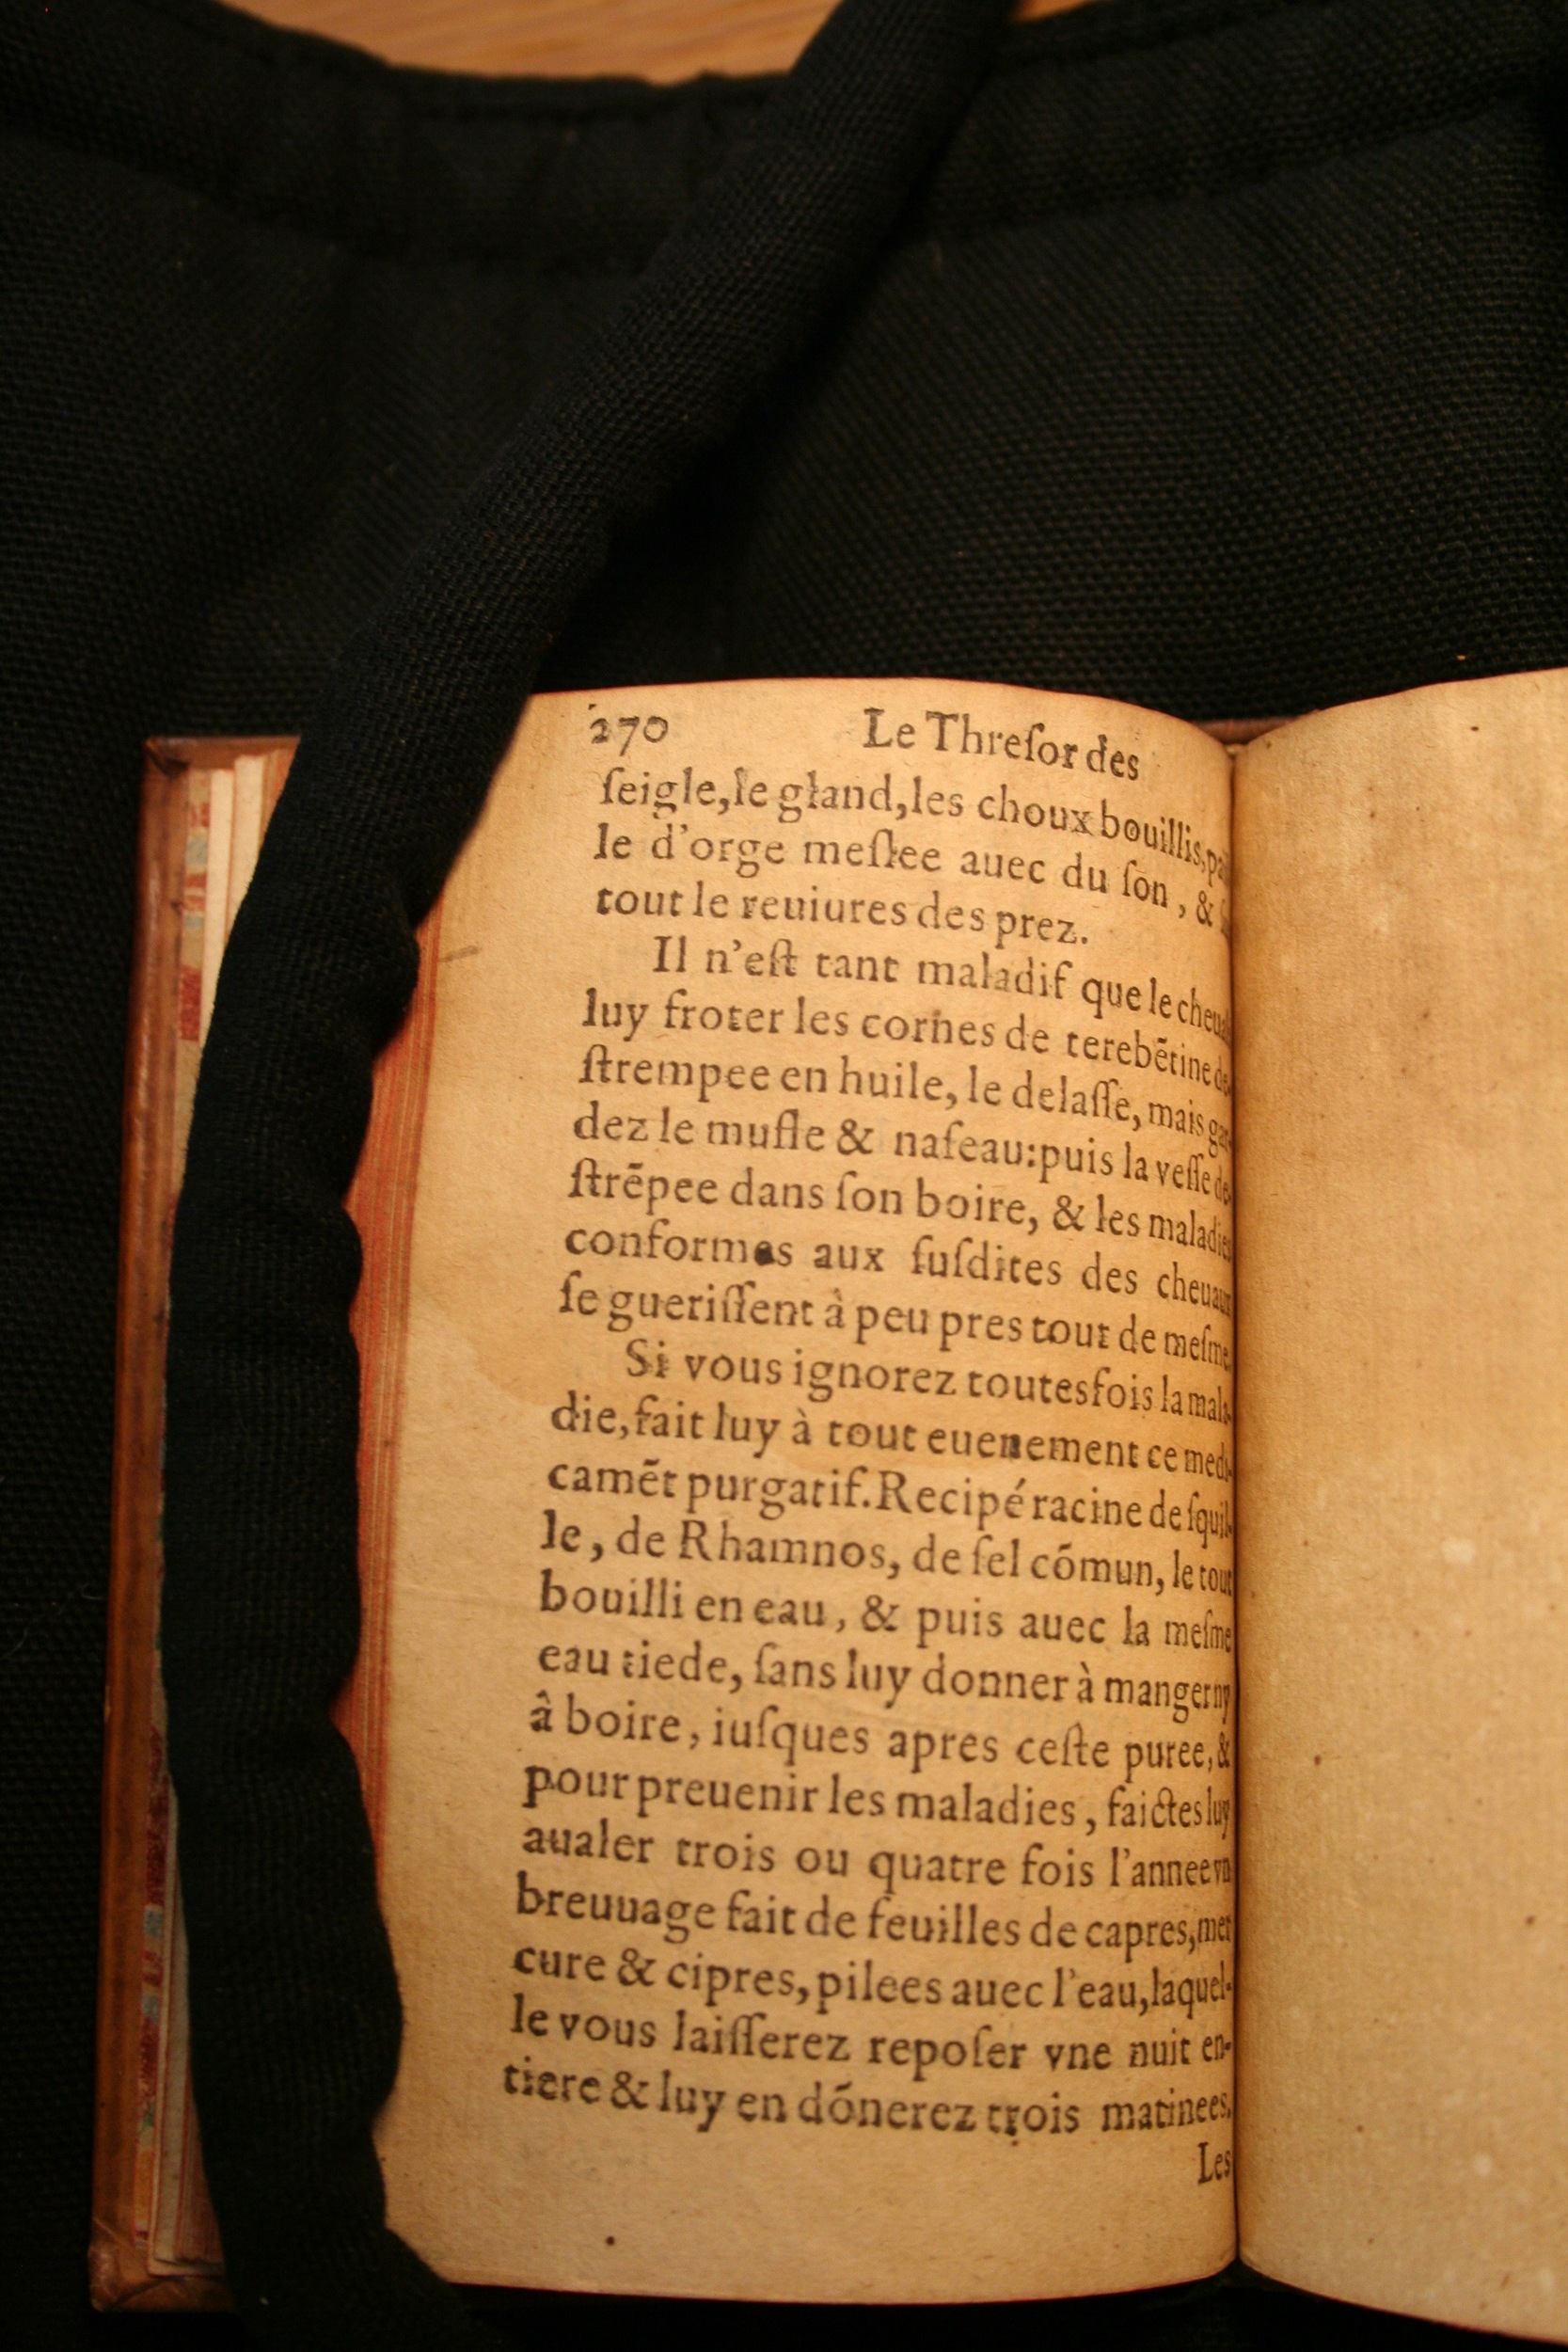 270 Le Threſor des
ſeigle, le gland, les choux bouillis,
le d'orge meſlee auec du ſon, &
tout le reuiures des prez.
Il n'eſt tant maladif que le cheual
luy froter les cornes de terebẽtine de
ſtrempee en huile, le delaſſe, mais gar
dez le mufle & naſeau: puis la veſſe de
ſtrẽpee dans ſon boire, & les maladies
conformes aux ſuſdites des cheuaux
ſe gueriſſent à peu pres tout de meſme.
Si vous ignorez toutesfois la mala-
die, fait luy à tout euenement ce medi-
camẽt purgatif. Recipé racine de ſquil-
le, de Rhamnos, de ſel cõmun, le tout
bouilli en eau, & puis auec la meſme
eau tiede, ſans luy donner à manger ny
â boire, iuſques apres ceſte puree, &
pour preuenir les maladies, faictes luy
aualer trois ou quatre fois l'annee vn
breuuage fait de feuilles de capres, mer
cure & cipres, pilees auec l'eau, laquel-
le vous laiſſerez repoſer vne nuit en-
tiere & luy en dõnerez trois matinees.
Les